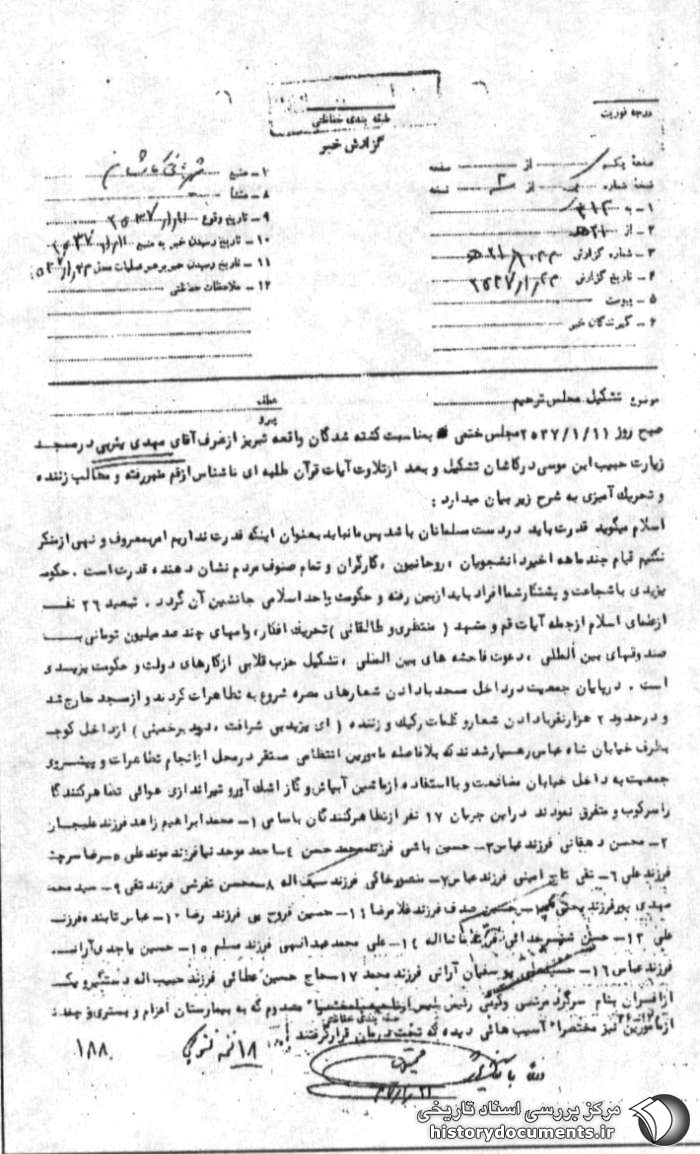 درجه فوریت
طبقه بندی حفاظتی
گزارش خبر
صفحه یک از صفحه
نسخه شماره از ۲ نسخه
۱ـ به ۳۱۲
۲ـ از ۲۱ه‍
۳ـ شماره گزارش
۴ـ تاریخ گزارش
۵ـ پیوست
۶ـ گیرندگان خبر
۷ـ منبع شهربانی کاشان
۸ـ منشأ
۹ـ تاریخ وقوع ۱۱/۱/۲۵۳۷
۱۰ـ تاریخ رسیدن خبر به منبع ۱۱/۱/۲۵۳۷
۱۱ـ تاریخ رسیدن خبر به رهبر عملیات محل
۱۲ـ ملاحظات حفاظتی
موضوع تشکیل مجلس ترحیم
عطف
پیرو
صبح روز ۲۵۳۷/۱/۱۱ مجلس ختمی بمناسبت کشته شدگان واقعه تبریز از طرف آقای مهدی یثربی در مسجد
زیارت حبیب ابن موسی در کاشان تشکیل و بعد از تلاوت آیات قرآن طلبه ای ناشناس از قم منبر رفته و مطالب زننده
و تحریک آمیزی به شرح زیر بیان میدارد :
اسلام میگوید قدرت باید در دست مسلمانان باشد پس ما نباید بعنوان اینکه قدرت نداریم امربمعروف و نهی از منکر
نکنیم قیام چند ماهه اخیر دانشجویان ، روحانیون ، کارگران و تمام صنوف مردم نشان دهنده قدرت است . حکومت
یزیدی با شجاعت و پشتکار شما افراد باید از بین رفته و حکومت واحد اسلامی جانشین آن گردد . تبعید ۲۶ نفر
از علمای اسلام از جمله آیات قم و مشهد ( منتظری و طالقانی ) تحریک افکار ، وامهای چند صد میلیون تومانی به
صندوقهای بین المللی ، دعوت فاحشه های بین المللی ، تشکیل حزب قلابی از کارهای دولت و حکومت یزیدی
است . در پایان جمعیت در داخل مسجد با دادن شعارهای مضره شروع به تظاهرات کردند و از مسجد خارج شد
و در حدود ۲ هزار نفر با دادن شعار و کلمات رکیک و زننده ( ای یزید بی شرافت ، درود بر خمینی ) از داخل کوچه
بطرف خیابان شاه عباس رهسپار شدند که بلافاصله مامورین انتظامی مستقر در محل از انجام تظاهرات و پیشروی
جمعیت به داخل خیابان ممانعت و با استفاده از ماشین آبپاش و گاز اشک آور و تیراندازی هوائی تظاهر کنندگا
را سرکوب و متفرق نمودند در این جریان ۱۷ نفر از تظاهر کنندگان باسامی ۱ـ محمد ابراهیم زاهد فرزند علیجان
۲ـ محسن دهقانی فرزند عباس ۳ـ حسین باشی فرزند محمد حسن ۴ـ احمد موحد نیا فرزند موند علی ۵ـ رضا سرچشمه
فرزند علی ۶ـ تقی تاج امینی فرزند عباس ۷ـ منصور خاکی فرزند سیف اله ۸ـ محسن تفرشی فرزند تقی ۹ـ سید محمد
مهدی پور فرزند یحیی حسین صدف فرزند غلامرضا ۱۱ـ حسین فروح بی فرزند رضا ۱۰ـ عباس تابنده فرزند
علی ۱۳ـ حسن فرزند ماشااله ۱۴ـ علی محمد میدانچی فرزند مسلم ۱۵ـ حسین باجدی آرانی
فرزند عباس ۱۶ـ حسینعلی یوسفیان آرانی فرزند محمد ۱۷ـ حاج حسین عطائی فرزند حبیب اله دستگیر و یک
از افسران بنام سرگرد مرتضی وکیلی رئیس پلیس مصدوم که به بیمارستان اعزام و بستری و چند
از مامورین نیز مختصرا" آسیب هائی دیده که تحت درمان قرار گرفتند
طبقه بندی حفاظتی
۱۸ نسخه
۱۸۸
مرکز بررسی اسناد تاریخی
historydocuments.ir